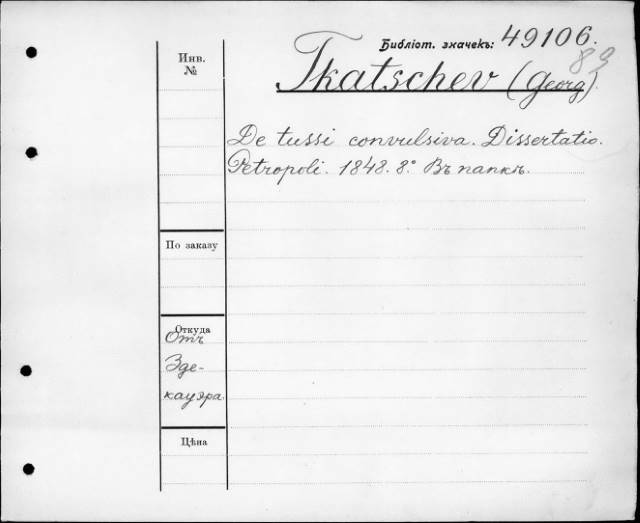 Библіот. значекъ: 49106.
83
Инв.
№
Tkatschev (Georg).
De tussi convulsiva. Dissertatio.
Petropoli. 1848. 8.° Въ папкѣ.
По заказу
Откуда
Отъ
Зде-
кауэра.
Цѣна